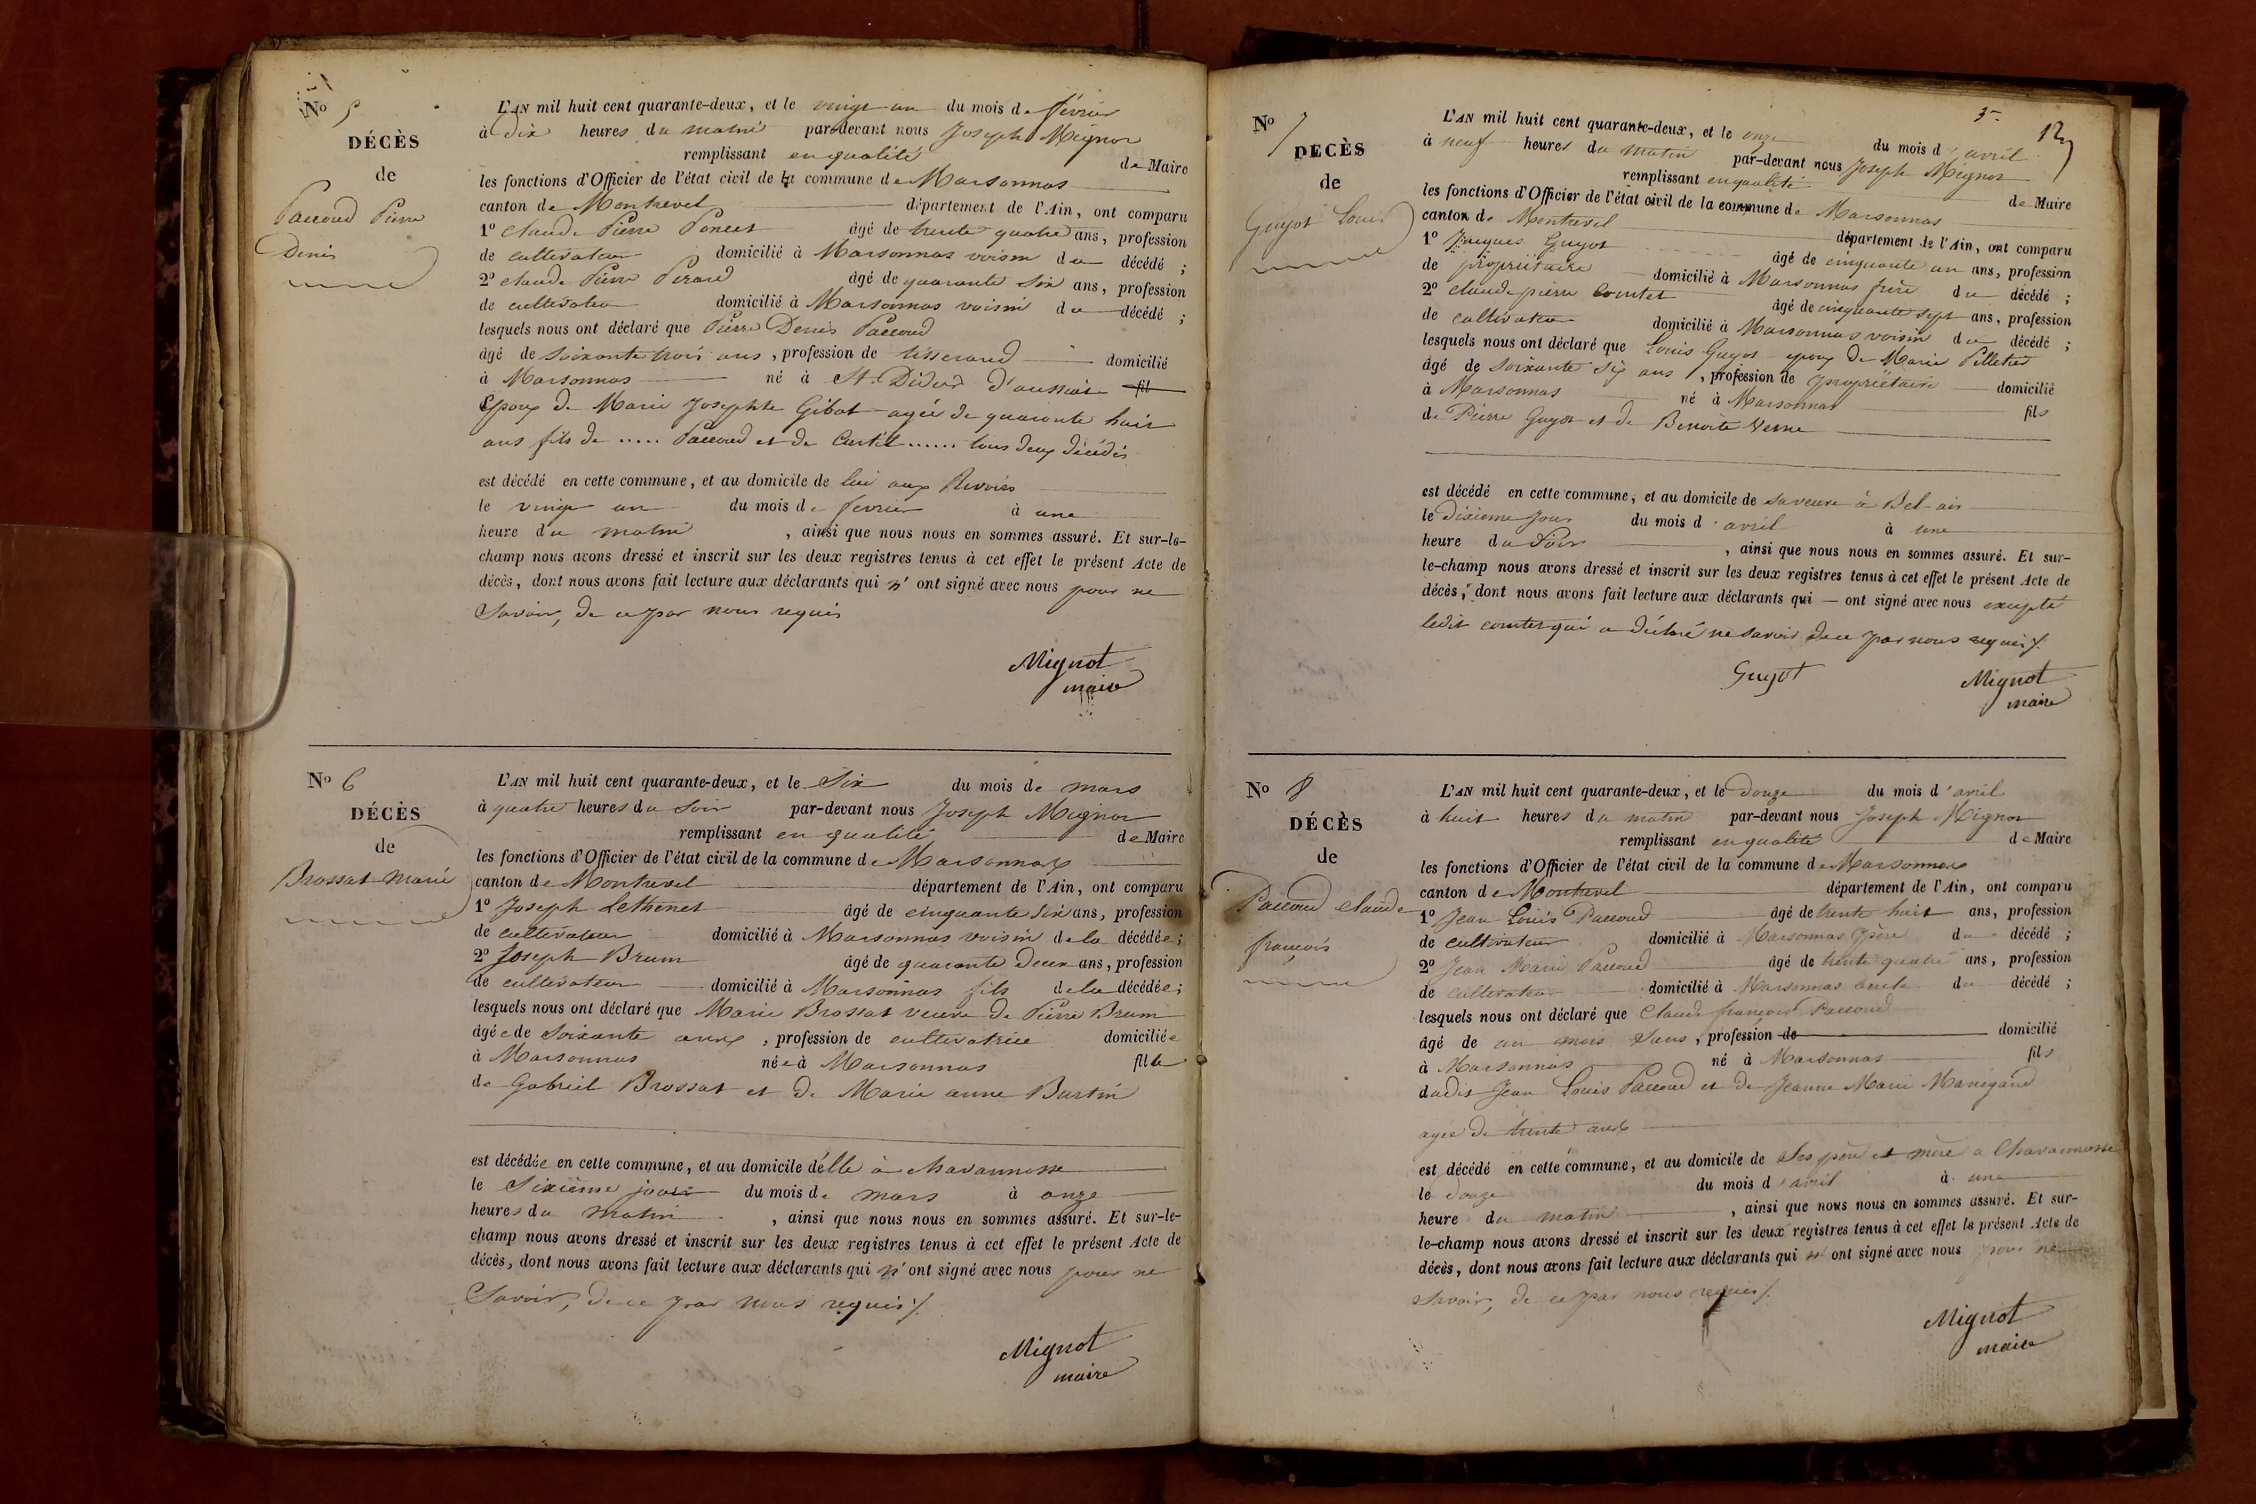 No 5
DÉCÈS
de
Paccoud Pierre
Denis
L'AN mil huit cent quarante-deux, et le vingt un du mois de février
à dix heures du matin par-devant nous Joseph Mignot
remplissant en qualité de Maire
les fonctions d'Officier de l'état civil de la commune de Marsonnas
canton de Montrevel département de l'Ain, ont comparu
1º Claude Pierre Poncet âgé de trente quatre ans, profession
de cultivateur domicilié à Marsonnas voisin du décédé ;
2º Claude Pierre Perard âgé de quarante six ans, profession
de cultivateur domicilié à Marsonnas voisin du décédé ;
lesquels nous ont déclaré que Pierre Denis Paccoud
âgé de soixante trois ans, profession de tisserand domicilié
à Marsonnas né à St Didier d'aussiat fil
Epoux de Marie Josephte Gibot agée de quarante huit
ans fils de ..... Paccoud et de Curtil ...... tous deux décédés
est décédé en cette commune, et au domicile de lui aux Rivoires
le vingt un du mois de fevrier à une
heure du matin , ainsi que nous nous en sommes assuré. Et sur-le-
champ nous avons dressé et inscrit sur les deux registres tenus à cet effet le présent Acte de
décès, dont nous avons fait lecture aux déclarants qui n'ont signé avec nous pour ne
Savoir, de ce par nous requis
Mignot
maire
No 6
DÉCÈS
de
Brossat Marie
L'AN mil huit cent quarante-deux, et le Six du mois de mars
à quatre heures du Soir par-devant nous Joseph Mignot
remplissant en qualité de Maire
les fonctions d'Officier de l'état civil de la commune de Marsonnas
canton de Montrevel département de l'Ain, ont comparu
1º Joseph Lethenet âgé de cinquante six ans, profession
de cultivateur domicilié à Marsonnas voisin de la décédée;
2º Joseph Brum âgé de quarante deux ans, profession
de cultivateur domicilié à Marsonnas fils de la décédée;
lesquels nous ont déclaré que Marie Brossat veuve de Pierre Brum
âgée de soixante ans, profession de cultivatrice domiciliée
à Marsonnas née à Marsonnas fille
de Gabriel Brossat et de Marie anne Burtin
est décédée en cette commune, et au domicile d'elle à Chavannosse
le Sixième jour du mois de mars à onze
heures du matin , ainsi que nous nous en sommes assuré. Et sur-le-
champ nous avons dressé et inscrit sur les deux registres tenus à cet effet le présent Acte de
décès, dont nous avons fait lecture aux déclarants qui n'ont signé avec nous pour ne
Savoir, de ce par nous requis
Mignot
maire
No 7
DECÈS
de
Guyot Louis
L'AN mil huit cent quarante-deux, et le onze du mois d'avril
à neuf heures du matin par-devant nous Joseph Mignot
remplissant en qualité de Maire
les fonctions d'Officier de l'état civil de la commune de Marsonnas
canton de Montrevel département de l'Ain, ont comparu
1º Jacques Guyot âgé de cinquante un ans, profession
de propriétaire domicilié à Marsonnas frère du décédé ;
2º Claude pierre Comtet âgé de cinquante sept ans, profession
de cultivateur domicilié à Marsonnas voisin du décédé ;
lesquels nous ont déclaré que Louis Guyot epoux de Marie Pelletier
âgé de soixante six ans, profession de propriétaire domicilié
à Marsonnas né à Marsonnas fils
de Pierre Guyot et de Benoite Verne
est décédé en cette commune, et au domicile de sa veuve à Bel-air
le dixieme jour du mois d'avril à une
heure du Soir , ainsi que nous nous en sommes assuré. Et sur-
le-champ nous avons dressé et inscrit sur les deux registres tenus à cet effet le présent Acte de
décès, dont nous avons fait lecture aux déclarants qui ont signé avec nous excepté
ledit comtet qui a déclaré ne savoir de ce par nous requis
Guyot
Mignot
maire
No 8
DÉCÈS
de
Paccoud Claude
françois
L'AN mil huit cent quarante-deux, et le douze du mois d'avril
à huit heures du matin par-devant nous Joseph Mignot
remplissant en qualité de Maire
les fonctions d'Officier de l'état civil de la commune de Marsonnas
canton de Montrevel département de l'Ain, ont comparu
1º Jean Louis Paccoud âgé de trente huit ans, profession
de cultivateur domicilié à Marsonnas père du décédé ;
2º Jean Marie Paccoud âgé de trente quatre ans, profession
de cultivateur domicilié à Marsonnas oncle du décédé ;
lesquels nous ont déclaré que Claude françois Paccoud
âgé de un mois sans, profession de domicilié
à Marsonnas né à Marsonnas fils
dudit Jean Louis Paccoud et de Jeanne Marie Manigand
agée de trente ans
est décédé en cette commune, et au domicile de ses père et mère a Chavannosse
le douze du mois d'avril à une
heure du matin , ainsi que nous nous en sommes assuré. Et sur-
le-champ nous avons dressé et inscrit sur les deux registres tenus à cet effet le présent Acte de
décès, dont nous avons fait lecture aux déclarants qui n'ont signé avec nous pour ne
Savoir, de ce par nous requis
Mignot
maire